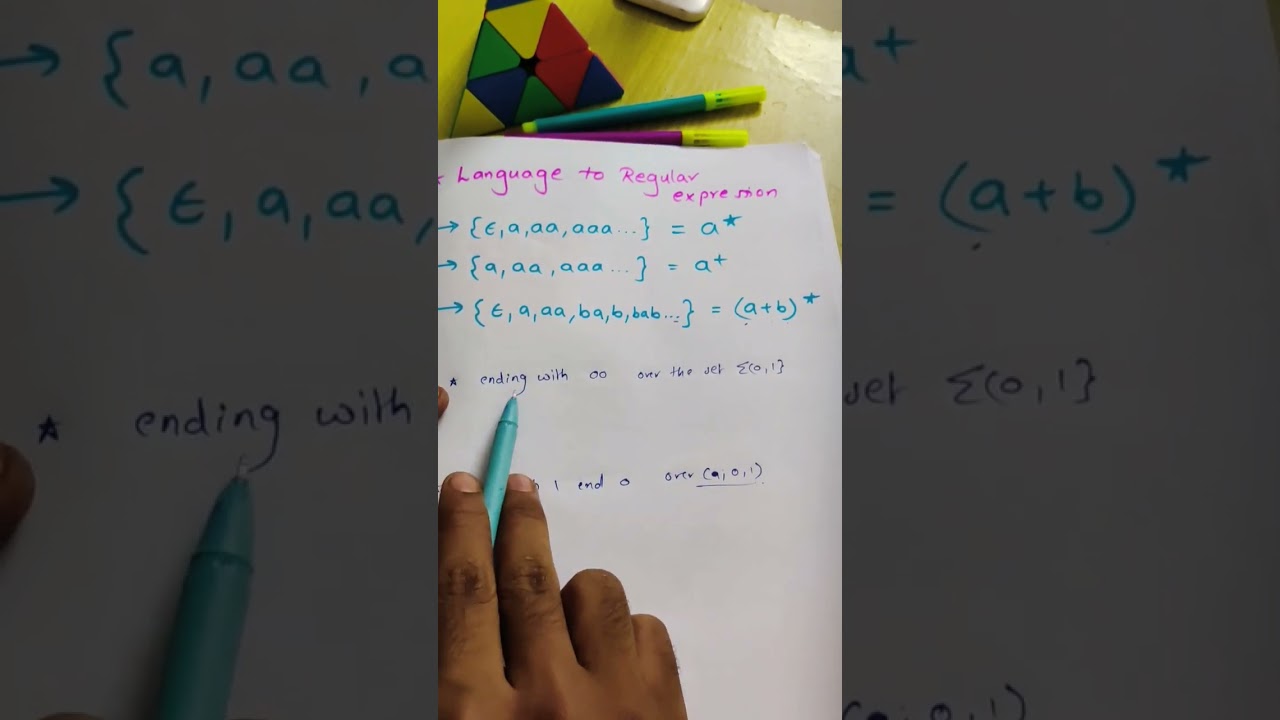 * Language to Regular
expression
→ {ϵ, a, aa, aaa...} = a*
→ {a, aa, aaa...} = a+
→ {ϵ, a, aa, ba, b, bab...} = (a+b)*
* ending with 00 over the set Σ(0,1}
1 end 0 over (a,0,1)